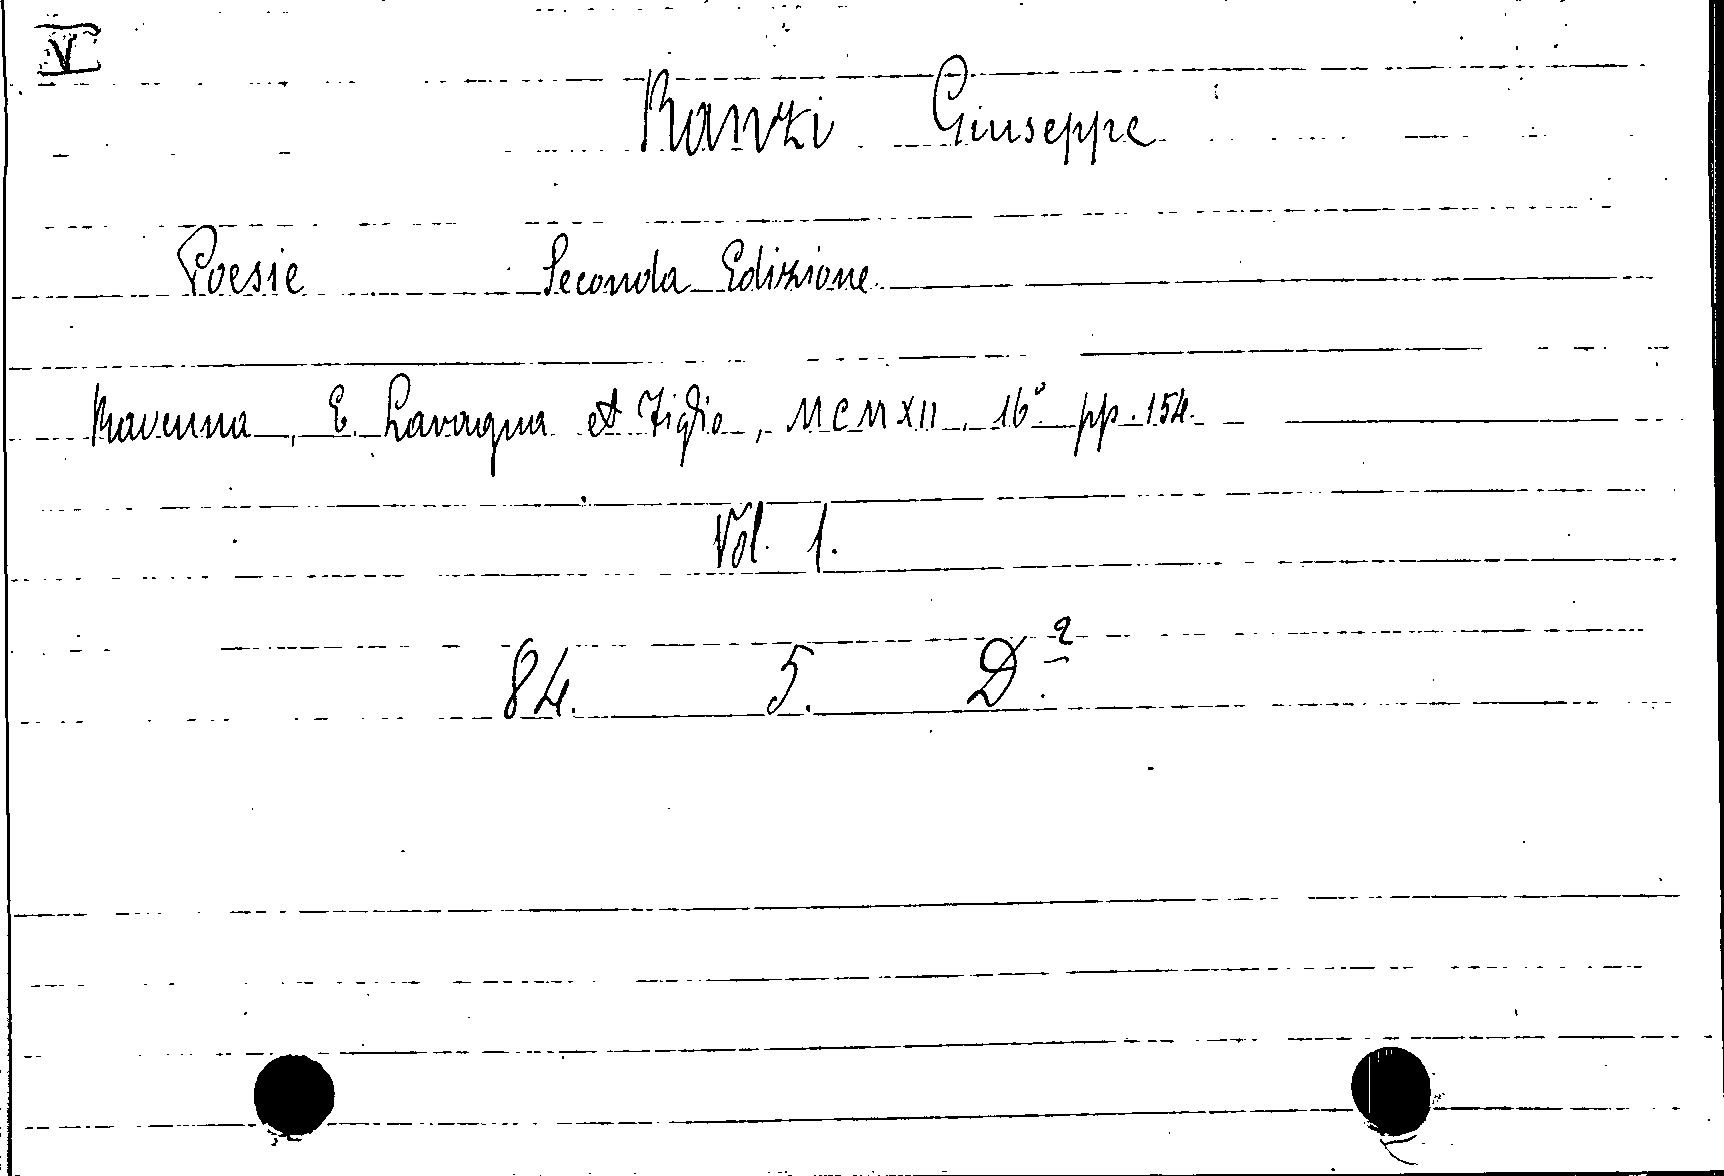 V
Ranzi Giuseppe
Poesie Seconda Edizione
Ravenna, E. Lavagna et Figlio, MCMXII, 16° pp. 154.
Vol. 1.
84. 5. D.²